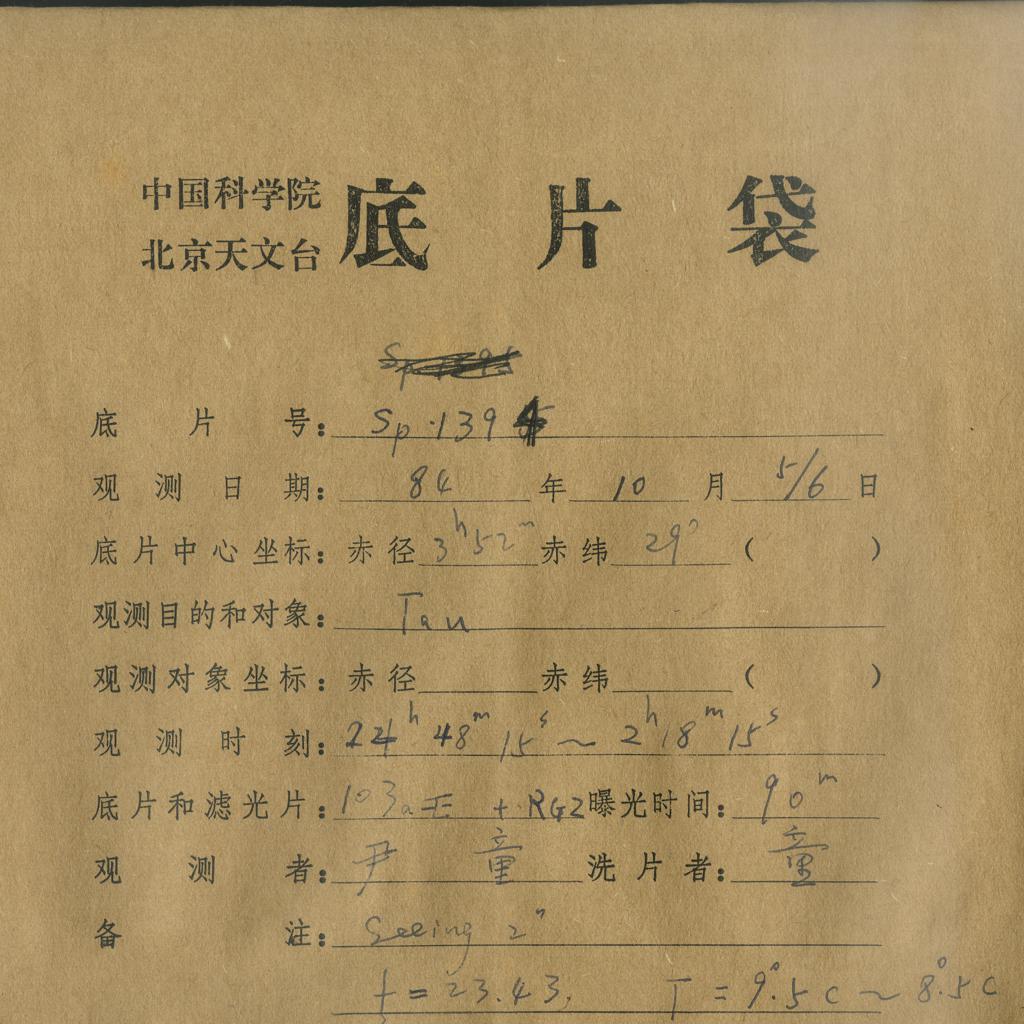 中国科学院
北京天文台
底片袋
底片号: Sp.139
观测日期: 84 年 10 月 5/6 日
底片中心坐标: 赤径 3h52m 赤纬 29° ( )
观测目的和对象: Tau
观测对象坐标: 赤径 赤纬 ( )
观测时刻: 24h 48m 15s ~ 2h 18m 15s
底片和滤光片: 103aE + RG2 曝光时间: 90m
观测者: 尹 童 洗片者: 童
备注: Seeing 2"
f = 23.43. T = 9°.5C ~ 8°.5C